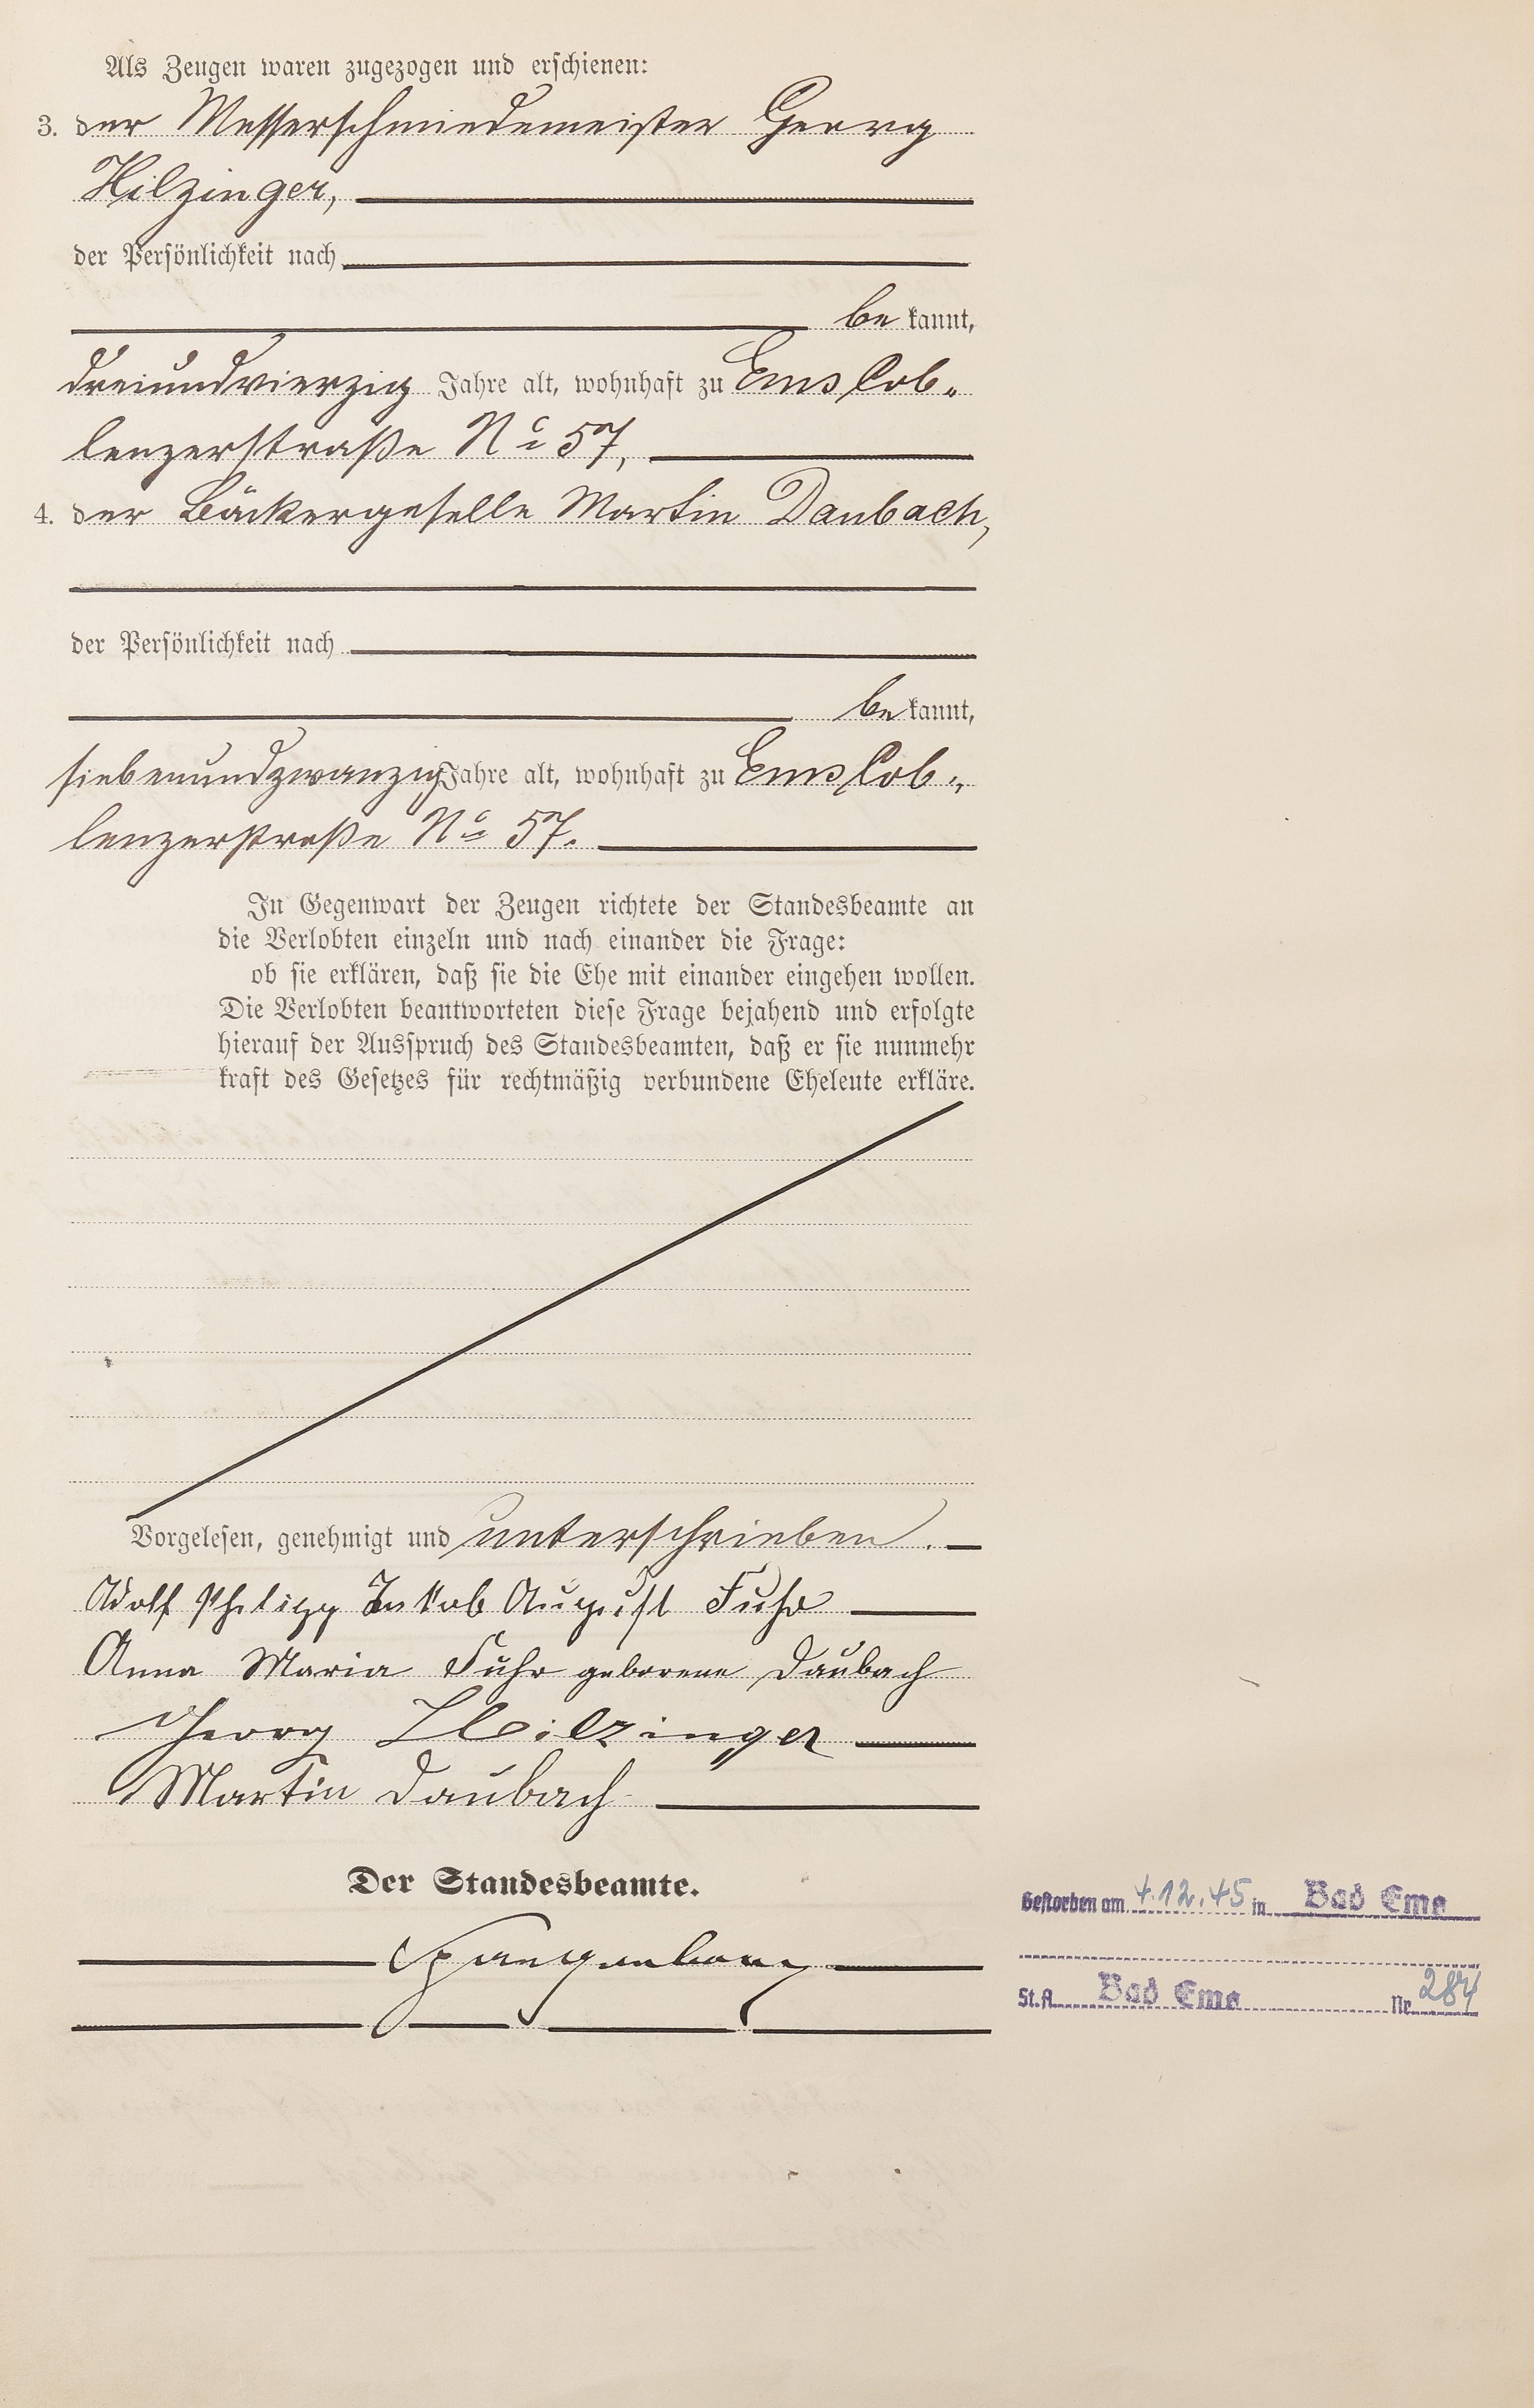 Als Zeugen waren zugezogen und erschienen:
3. der Messerschmiedemeister Georg
Hilzinger,
der Persönlichkeit nach
be kannt,
dreiundvierzig Jahre alt, wohnhaft zu Ems Cob-
lenzerstraße No 57,
4. der Bäckergeselle Martin Daubach,
der Persönlichkeit nach
be kannt,
siebenundzwanzig Jahre alt, wohnhaft zu Ems Cob-
lenzerstraße No 57.
In Gegenwart der Zeugen richtete der Standesbeamte an
die Verlobten einzeln und nach einander die Frage:
ob sie erklären, daß sie die Ehe mit einander eingehen wollen.
Die Verlobten beantworteten diese Frage bejahend und erfolgte
hierauf der Ausspruch des Standesbeamten, daß er sie nunmehr
kraft des Gesetzes für rechtmäßig verbundene Eheleute erkläre.
Vorgelesen, genehmigt und unterschrieben.
Adolf Philipp Jakob August Fuhr
Anna Maria Fuhr geborene Daubach
Georg Hilzinger
Martin Daubach
Der Standesbeamte.
Spangenberg
Gestorben am 4.12.45 in Bad Ems
St.A. Bad Ems Nr. 284